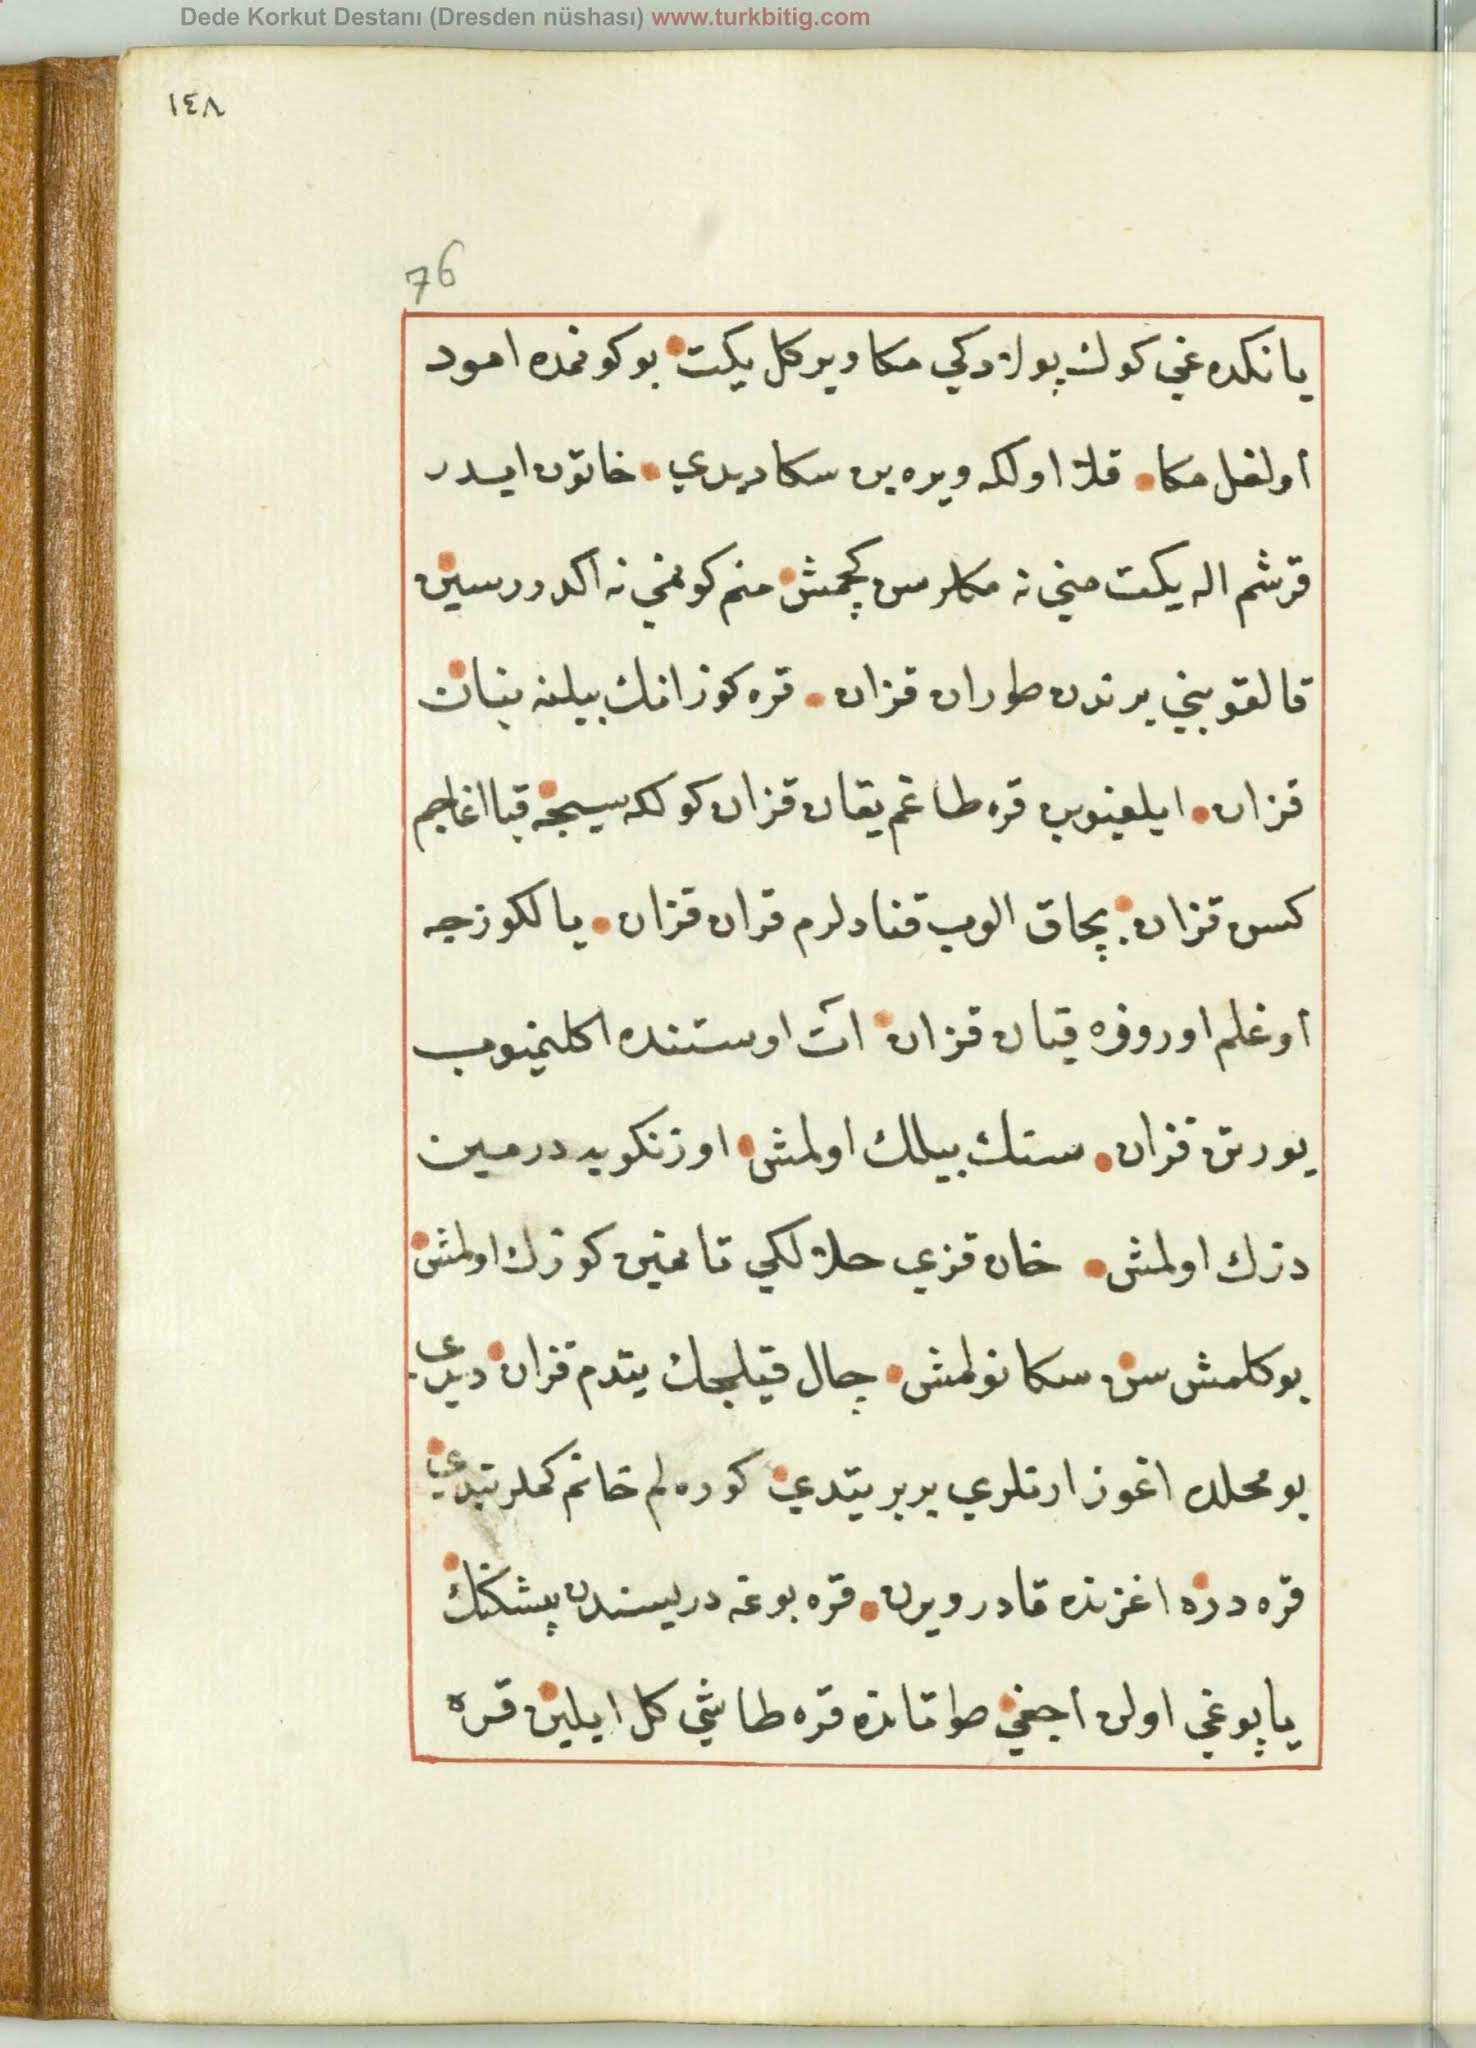 Dede Korkut Destanı (Dresden nüshası) www.turkbitig.com
١٤٨
76
يانكده غي كوك پولادكي مكا ويركل يكت بو كونمده امود
اولغل مكا قلا اولكه ويره ين سكا ديدي خاتون ايدر
قرشم اله يكت مني نه مكارسن كچمش منم كونمي نه اكدورسين
قالقوبني يرندن طوران قزان قره كوز اتك بيلنه بنبان
قزان ايلغيوب قره طاغم يقان قزان كولكه سيجه قبا اغاجم
كسن قزان بچاق الوب قنادلرم قران قزان يالكوزجه
اوغلم اوروزه قيان قزان ات اوستنده اكلنميوب
يورتن قزان سنك بيلك اولمش اوزنكويه درمين
دزك اولمش خان قزي حلالكي تانمين كوزك اولمش
بوكلمش سن سكا نولمش چال قيلجك يتدم قزان ديدي
بو محلده اغوز ارنلري بربر يتدي كوره لم خانم كملر يتدي
قره دره اغزنده قادر ويرن قره بوغه دريسندن بيشكنك
ياپوغي اولن اجغي طواتانده قره طاشي كل ايلين قره